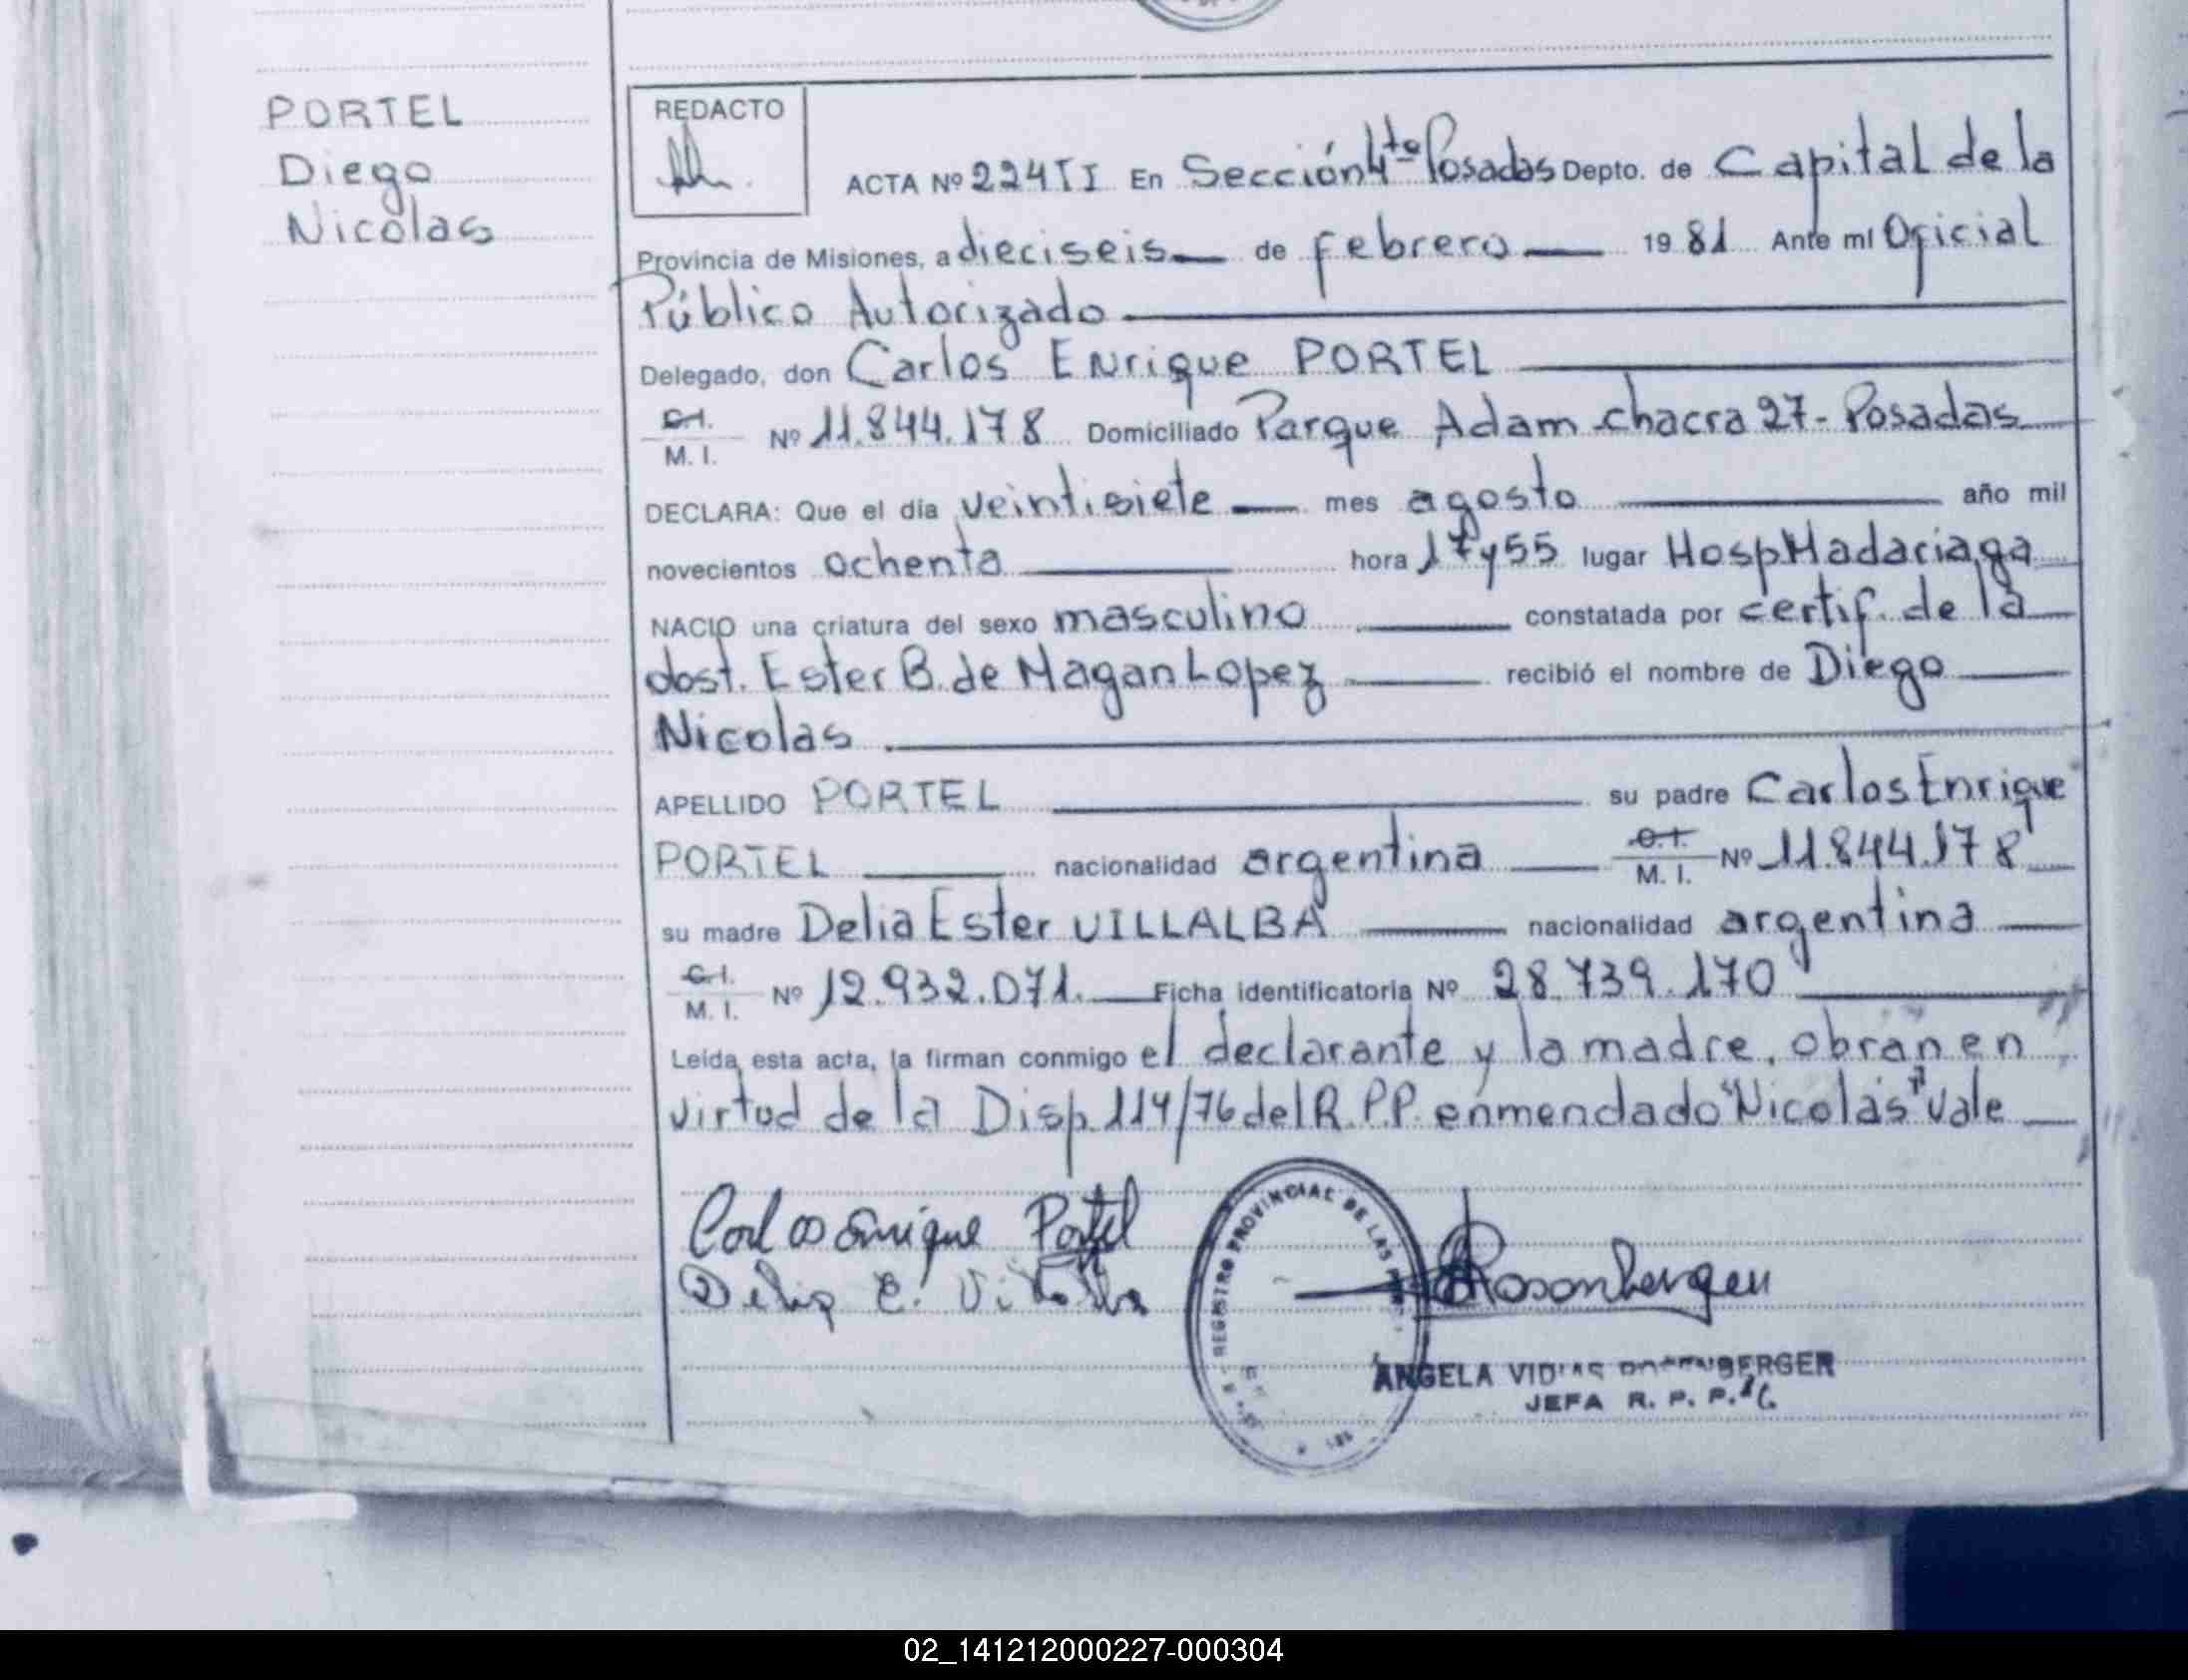 PORTEL
Diego
Nicolas
REDACTO
ACTA Nº 224 II En Sección 4ta Posadas Depto. de Capital de la
Provincia de Misiones, a dieciseis de febrero 1981 Ante mI Oficial
Público Autorizado
Delegado, don Carlos Enrique PORTEL
C.I.
M. I. Nº 11.844.178 Domiciliado Parque Adam - chacra 27 - Posadas
DECLARA: Que el día veintisiete mes agosto año mil
novecientos ochenta hora 17 y 55 lugar Hosp Madariaga
NACIO una criatura del sexo masculino constatada por certif. de la
obst. Ester B. de Magan Lopez recibió el nombre de Diego
Nicolas
APELLIDO PORTEL su padre Carlos Enrique
PORTEL nacionalidad argentina C.I. M. I. Nº 11.844.178
su madre Delia Ester VILLALBA nacionalidad argentina
C.I.
M. I. Nº 12.932.071. Ficha identificatoria Nº 28.739.170
Leída esta acta, la firman conmigo el declarante y la madre, obran en
virtud de la Disp. 114/76 del R.P.P. enmendado "Nicolas" vale
Carlos Enrique Portel
Delia E. Villalba
REGISTRO PROVINCIAL DE LAS
Rosenberger
ANGELA VIDIAS ROSENBERGER
JEFA R. P. P.
02_141212000227-000304